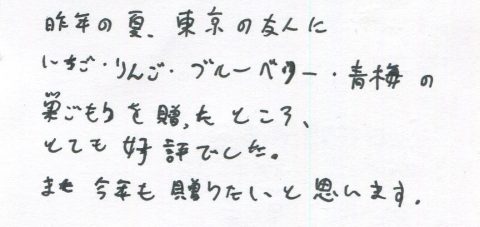 昨年の夏、東京の友人に
いちご・りんご・ブルーベリー・青梅の
巣ごもりを贈ったところ、
とても好評でした。
また今年も贈りたいと思います。